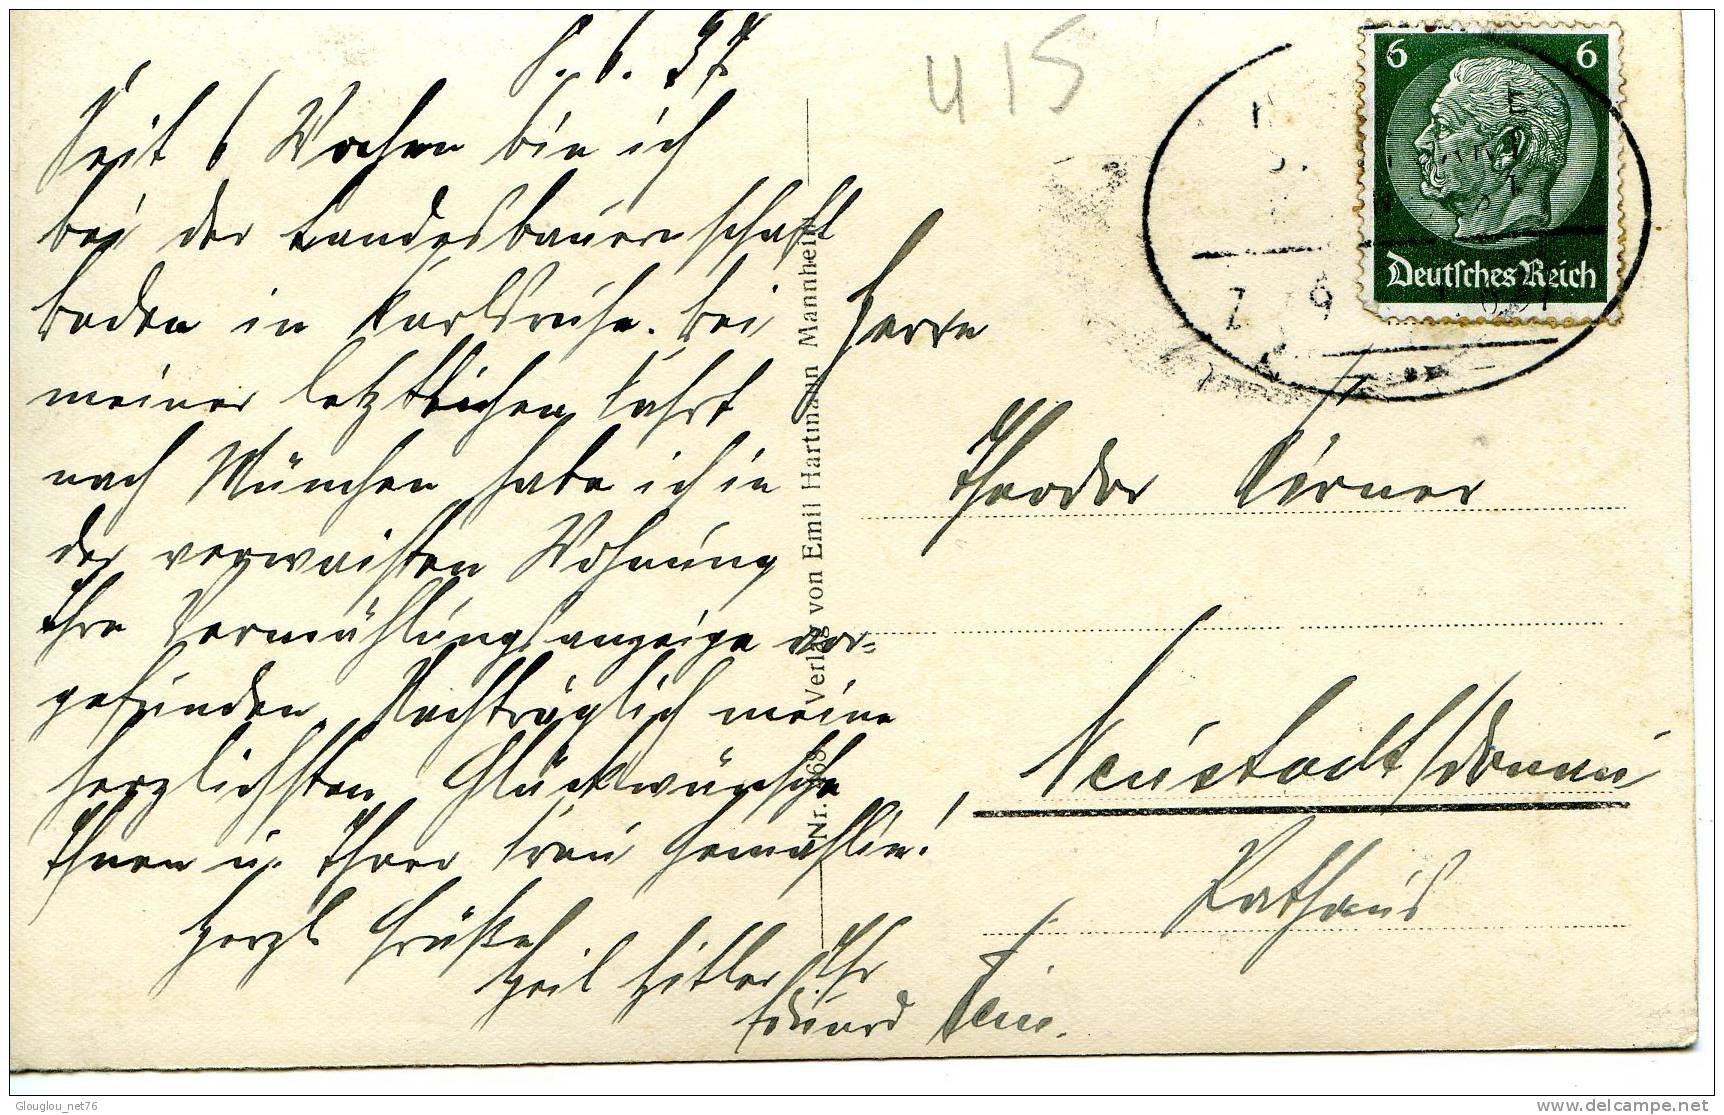 8. 6. 37
Seit 6 Wochen bin ich
bei der Landesbauernschaft
Baden in Karlsruhe. Bei
meiner letztlichen Fahrt
nach München habe ich in
der verwaisten Wohnung
Ihre Vermählungsanzeige vor-
gefunden. Nachträglich meine
herzlichsten Glückwünsche
Ihnen u. Ihrer Frau Gemahlin!
Herzl. Grüße
Heil Hitler Ihr
Eduard
Verlag von Emil Hartmann Mannheim
Nr.
415
6 6
Deutsches Reich
Herrn
Theodor Körner
Neustadt/Donau
Rathaus
Glouglou_net76
http://www.delcampe.net